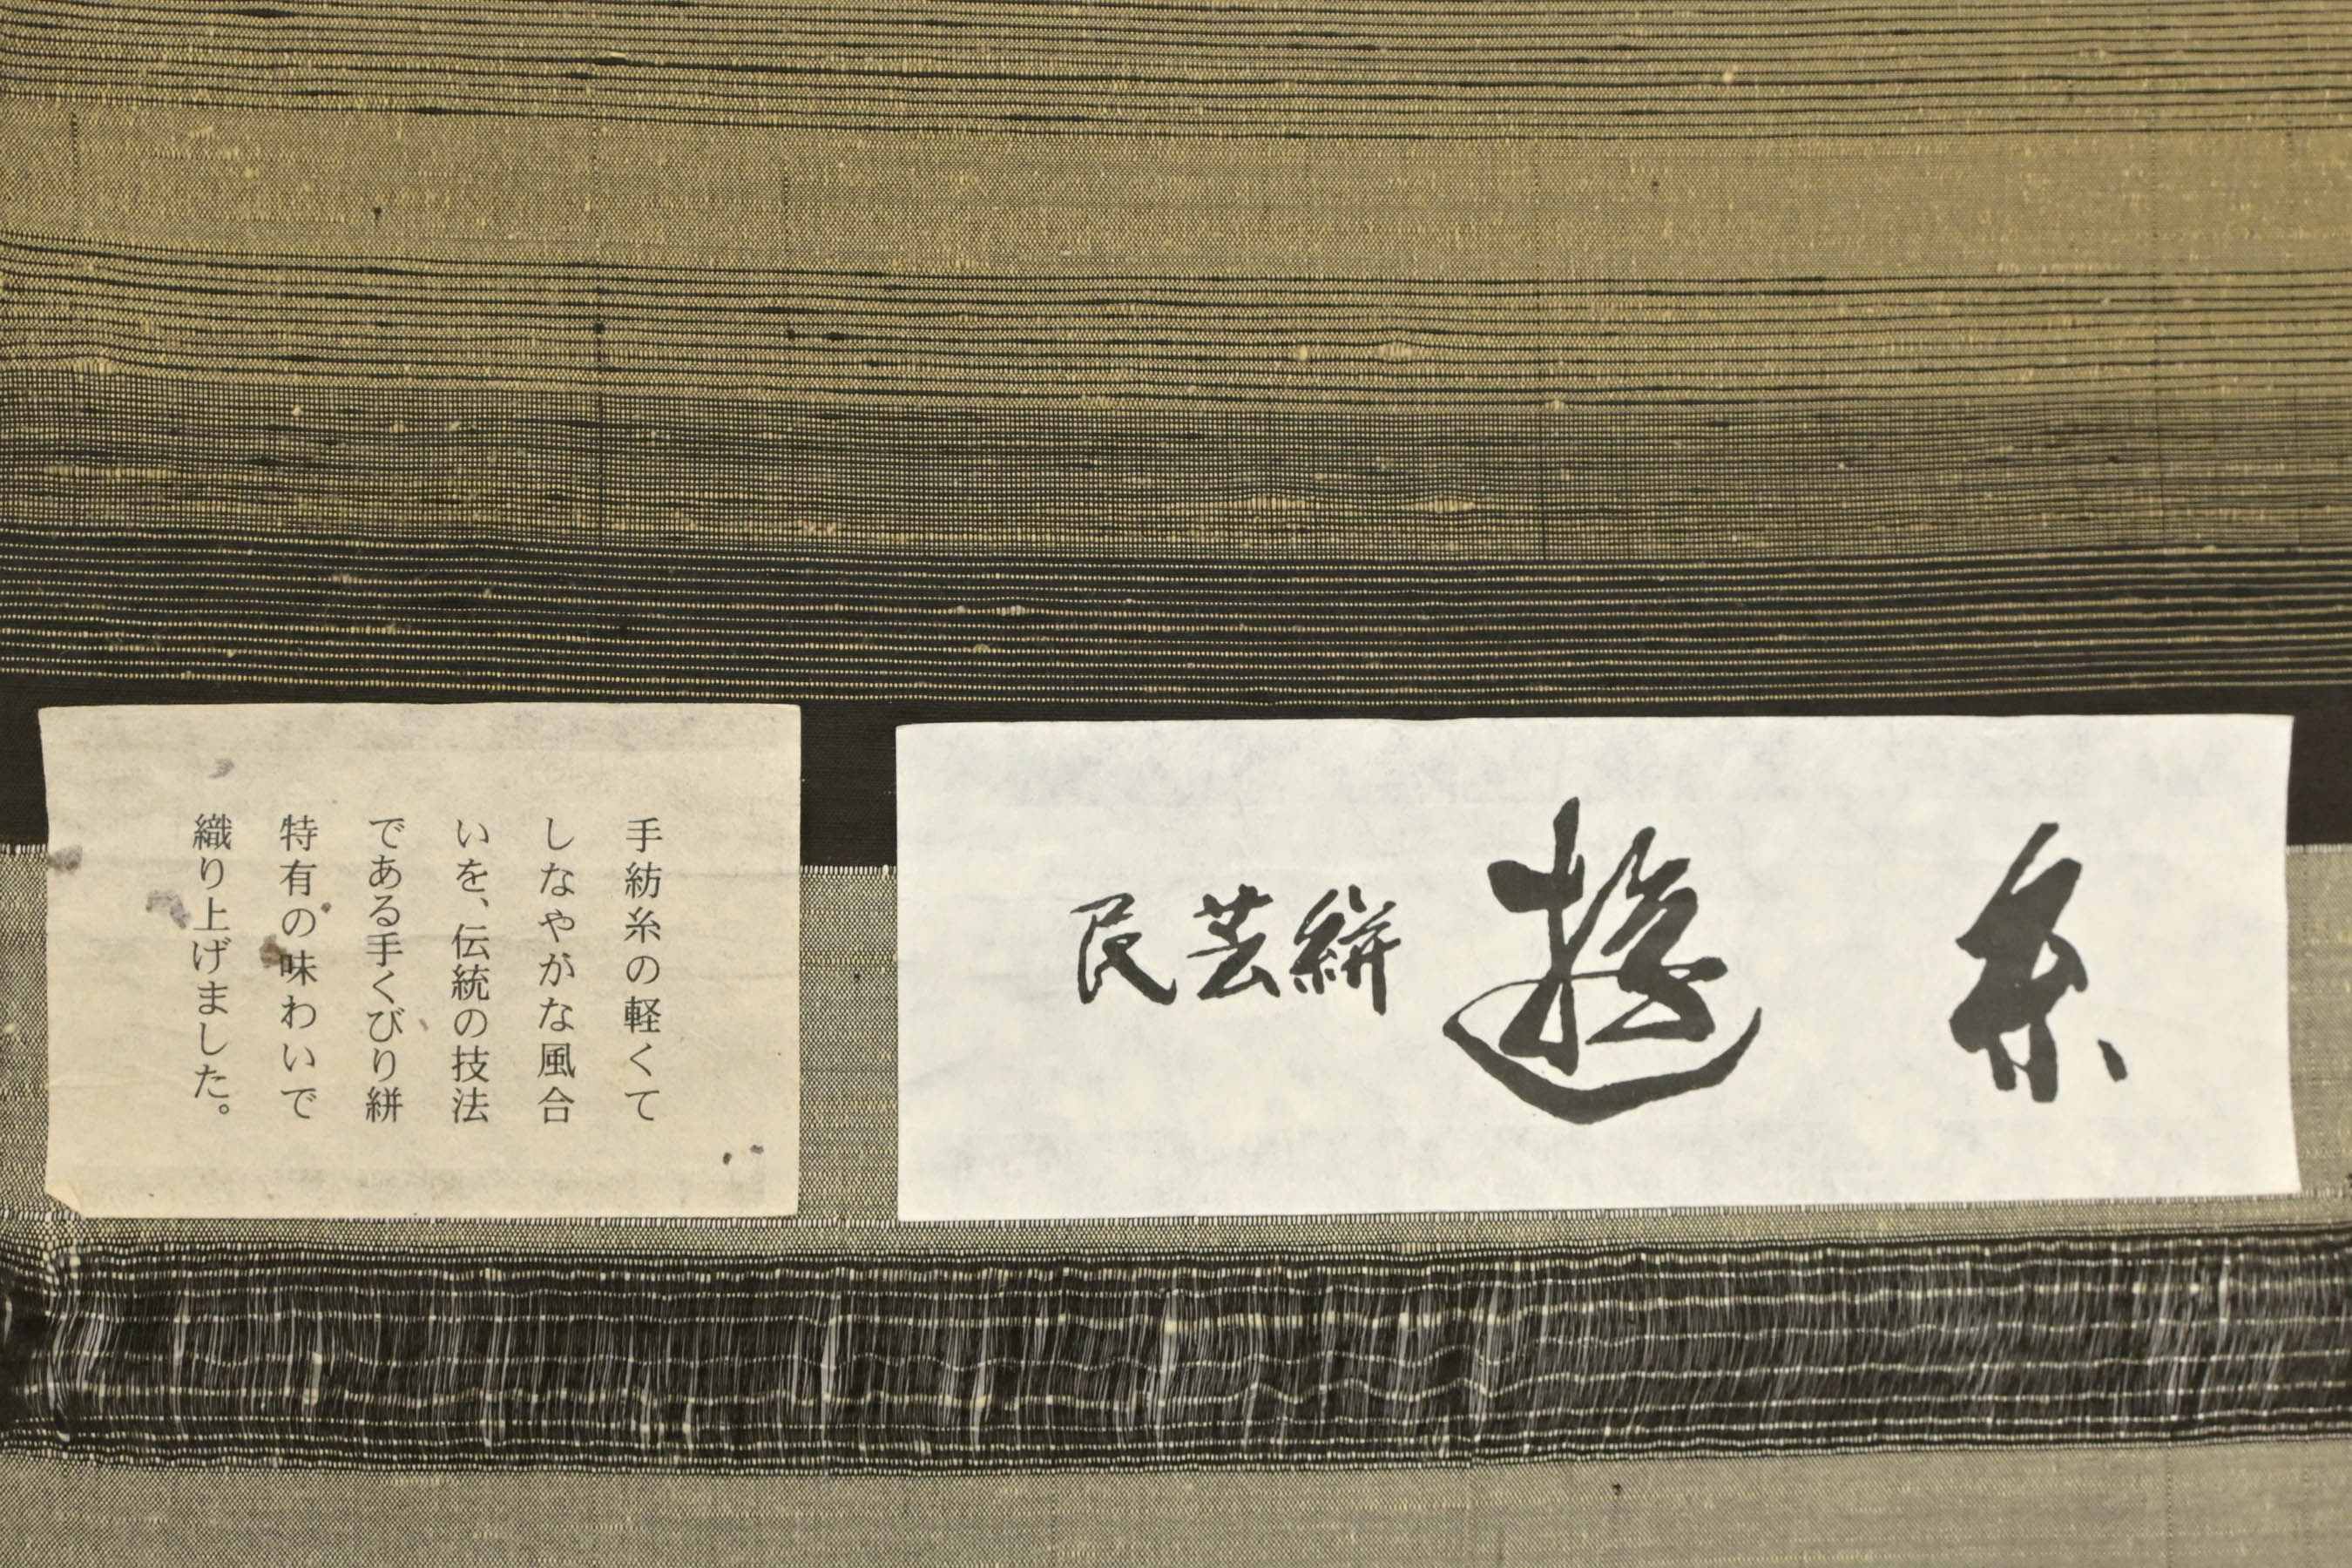 民芸絣 遊糸
手紡糸の軽くて
しなやかな風合
いを、伝統の技法
である手くびり絣
特有の味わいで
織り上げました。